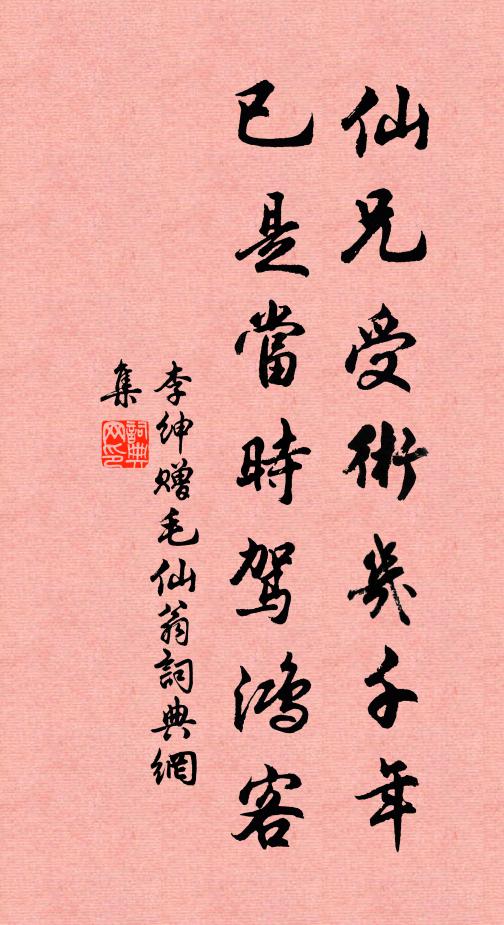 仙兄受術幾千年
已是當時駕鴻客
李紳贈毛仙翁詞典網
集
詞典
网印